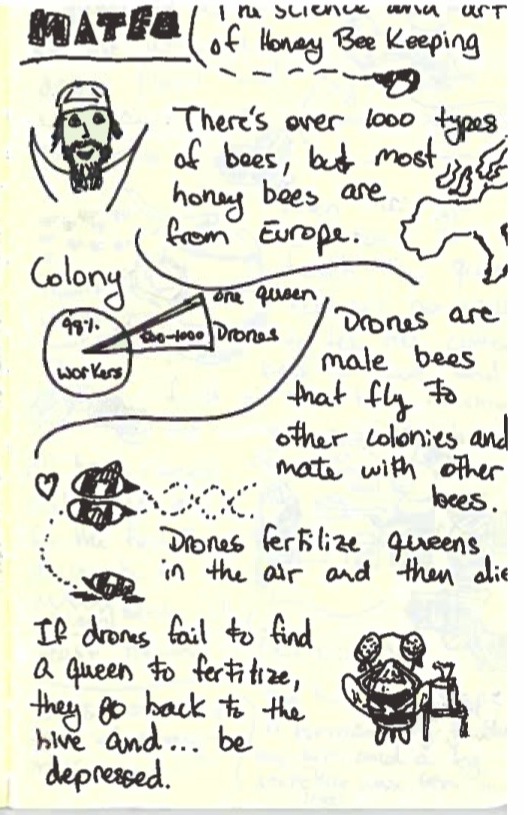 The science and art
of Honey Bee Keeping
There's over 1000 types
of bees, but most
honey bees are
from Europe.
Colony
one queen
98%
500-1000
Drones
workers
Drones are
male bees
that fly to
other colonies and
mate with other
bees.
Drones fertilize queens
in the air and then die
If drones fail to find
a queen to fertilize,
they go back to the
hive and... be
depressed.